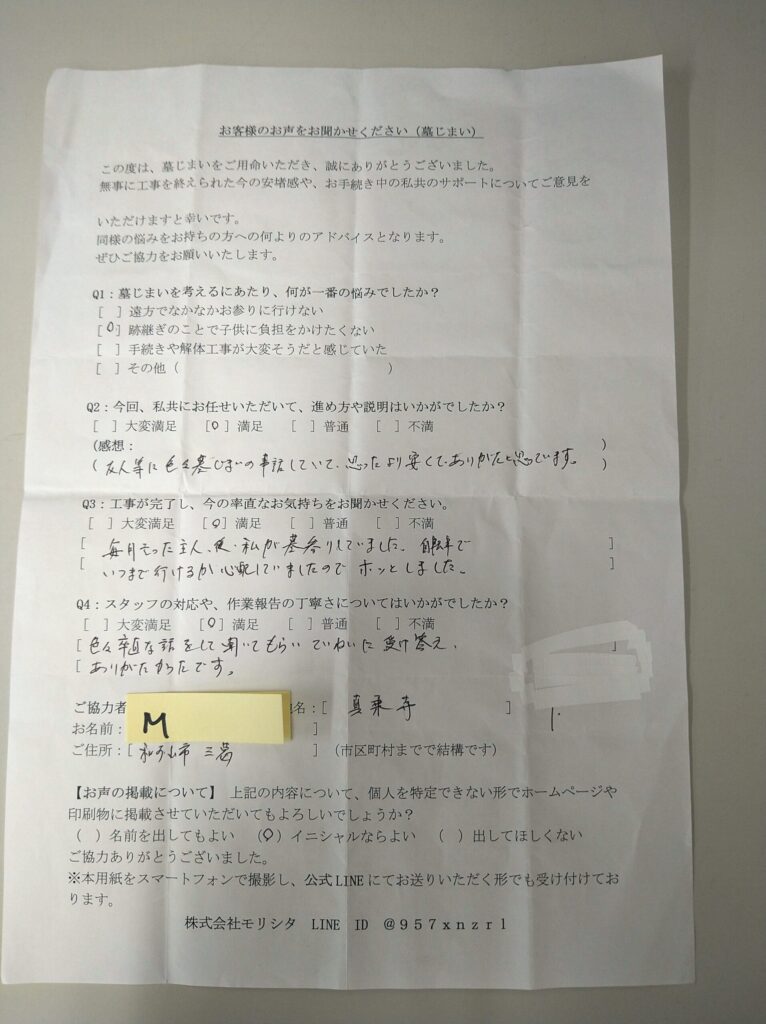 お客様のお声をお聞かせください（墓じまい）
この度は、墓じまいをご用命いただき、誠にありがとうございました。
無事に工事を終えられた今の安堵感や、お手続き中の私共のサポートについてご意見を
いただけますと幸いです。
同様の悩みをお持ちの方への何よりのアドバイスとなります。
ぜひご協力をお願いいたします。
Q1：墓じまいを考えるにあたり、何が一番の悩みでしたか？
[　] 遠方でなかなかお参りに行けない
[○] 跡継ぎのことで子供に負担をかけたくない
[　] 手続きや解体工事が大変そうだと感じていた
[　] その他（　　　　　　　　　　）
Q2：今回、私共にお任せいただいて、進め方や説明はいかがでしたか？
[　] 大変満足　[○] 満足　[　] 普通　[　] 不満
(感想：　　　　　　　　　　)
(友人等に色々墓じまいの事話していて、思ったより安くて、ありがたと思っています。)
Q3：工事が完了し、今の率直なお気持ちをお聞かせください。
[　] 大変満足　[○] 満足　[　] 普通　[　] 不満
[ 毎月そった主人、後、私が墓参りしていました。自転車で ]
[ いつまで行けるか心配していましたので ホッとしました。 ]
Q4：スタッフの対応や、作業報告の丁寧さについてはいかがでしたか？
[　] 大変満足　[○] 満足　[　] 普通　[　] 不満
[ 色々率直な話をして聞いてもらい ていねいに受け答え、 ]
[ ありがたかったです。
ご協力者 名：[ 真乗寺 ]
お名前： M ]
ご住所：[ 和歌山市 三葛 ] (市区町村までで結構です)
【お声の掲載について】 上記の内容について、個人を特定できない形でホームページや
印刷物に掲載させていただいてもよろしいでしょうか？
（　）名前を出してもよい　（○）イニシャルならよい　（　）出してほしくない
ご協力ありがとうございました。
※本用紙をスマートフォンで撮影し、公式LINEにてお送りいただく形でも受け付けてお
ります。
株式会社モリシタ　LINE　ID　@957xnzrl